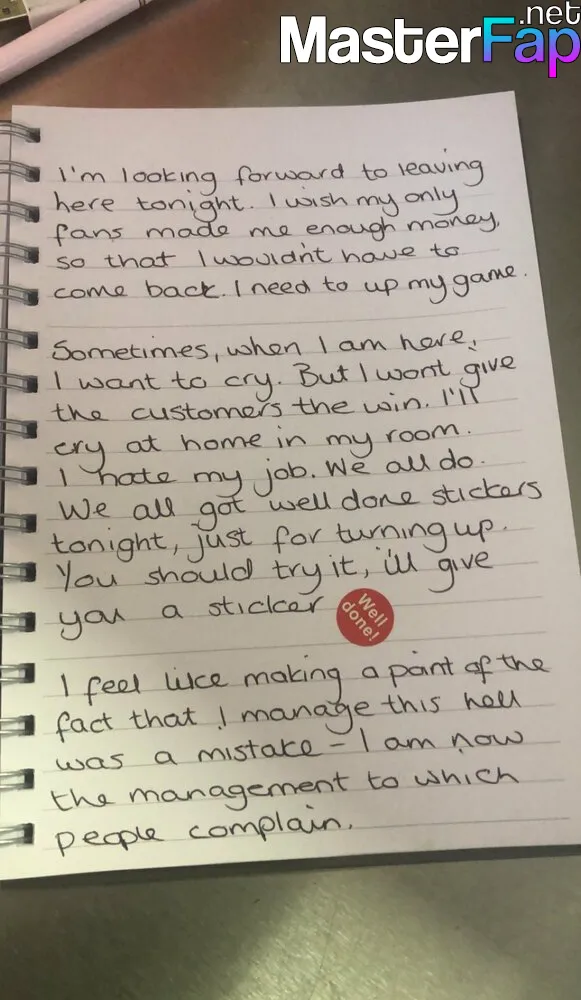 .net
MasterFap
I'm looking forward to leaving
here tonight. I wish my only
fans made me enough money,
so that I wouldn't have to
come back. I need to up my game.
Sometimes, when I am here,
I want to cry. But I wont give
the customers the win. I'll
cry at home in my room.
I hate my job. We all do.
We all got well done stickers
tonight, just for turning up.
You should try it, i'll give
you a sticker Well
done!
I feel like making a point of the
fact that I manage this hell
was a mistake - I am now
the management to which
people complain.